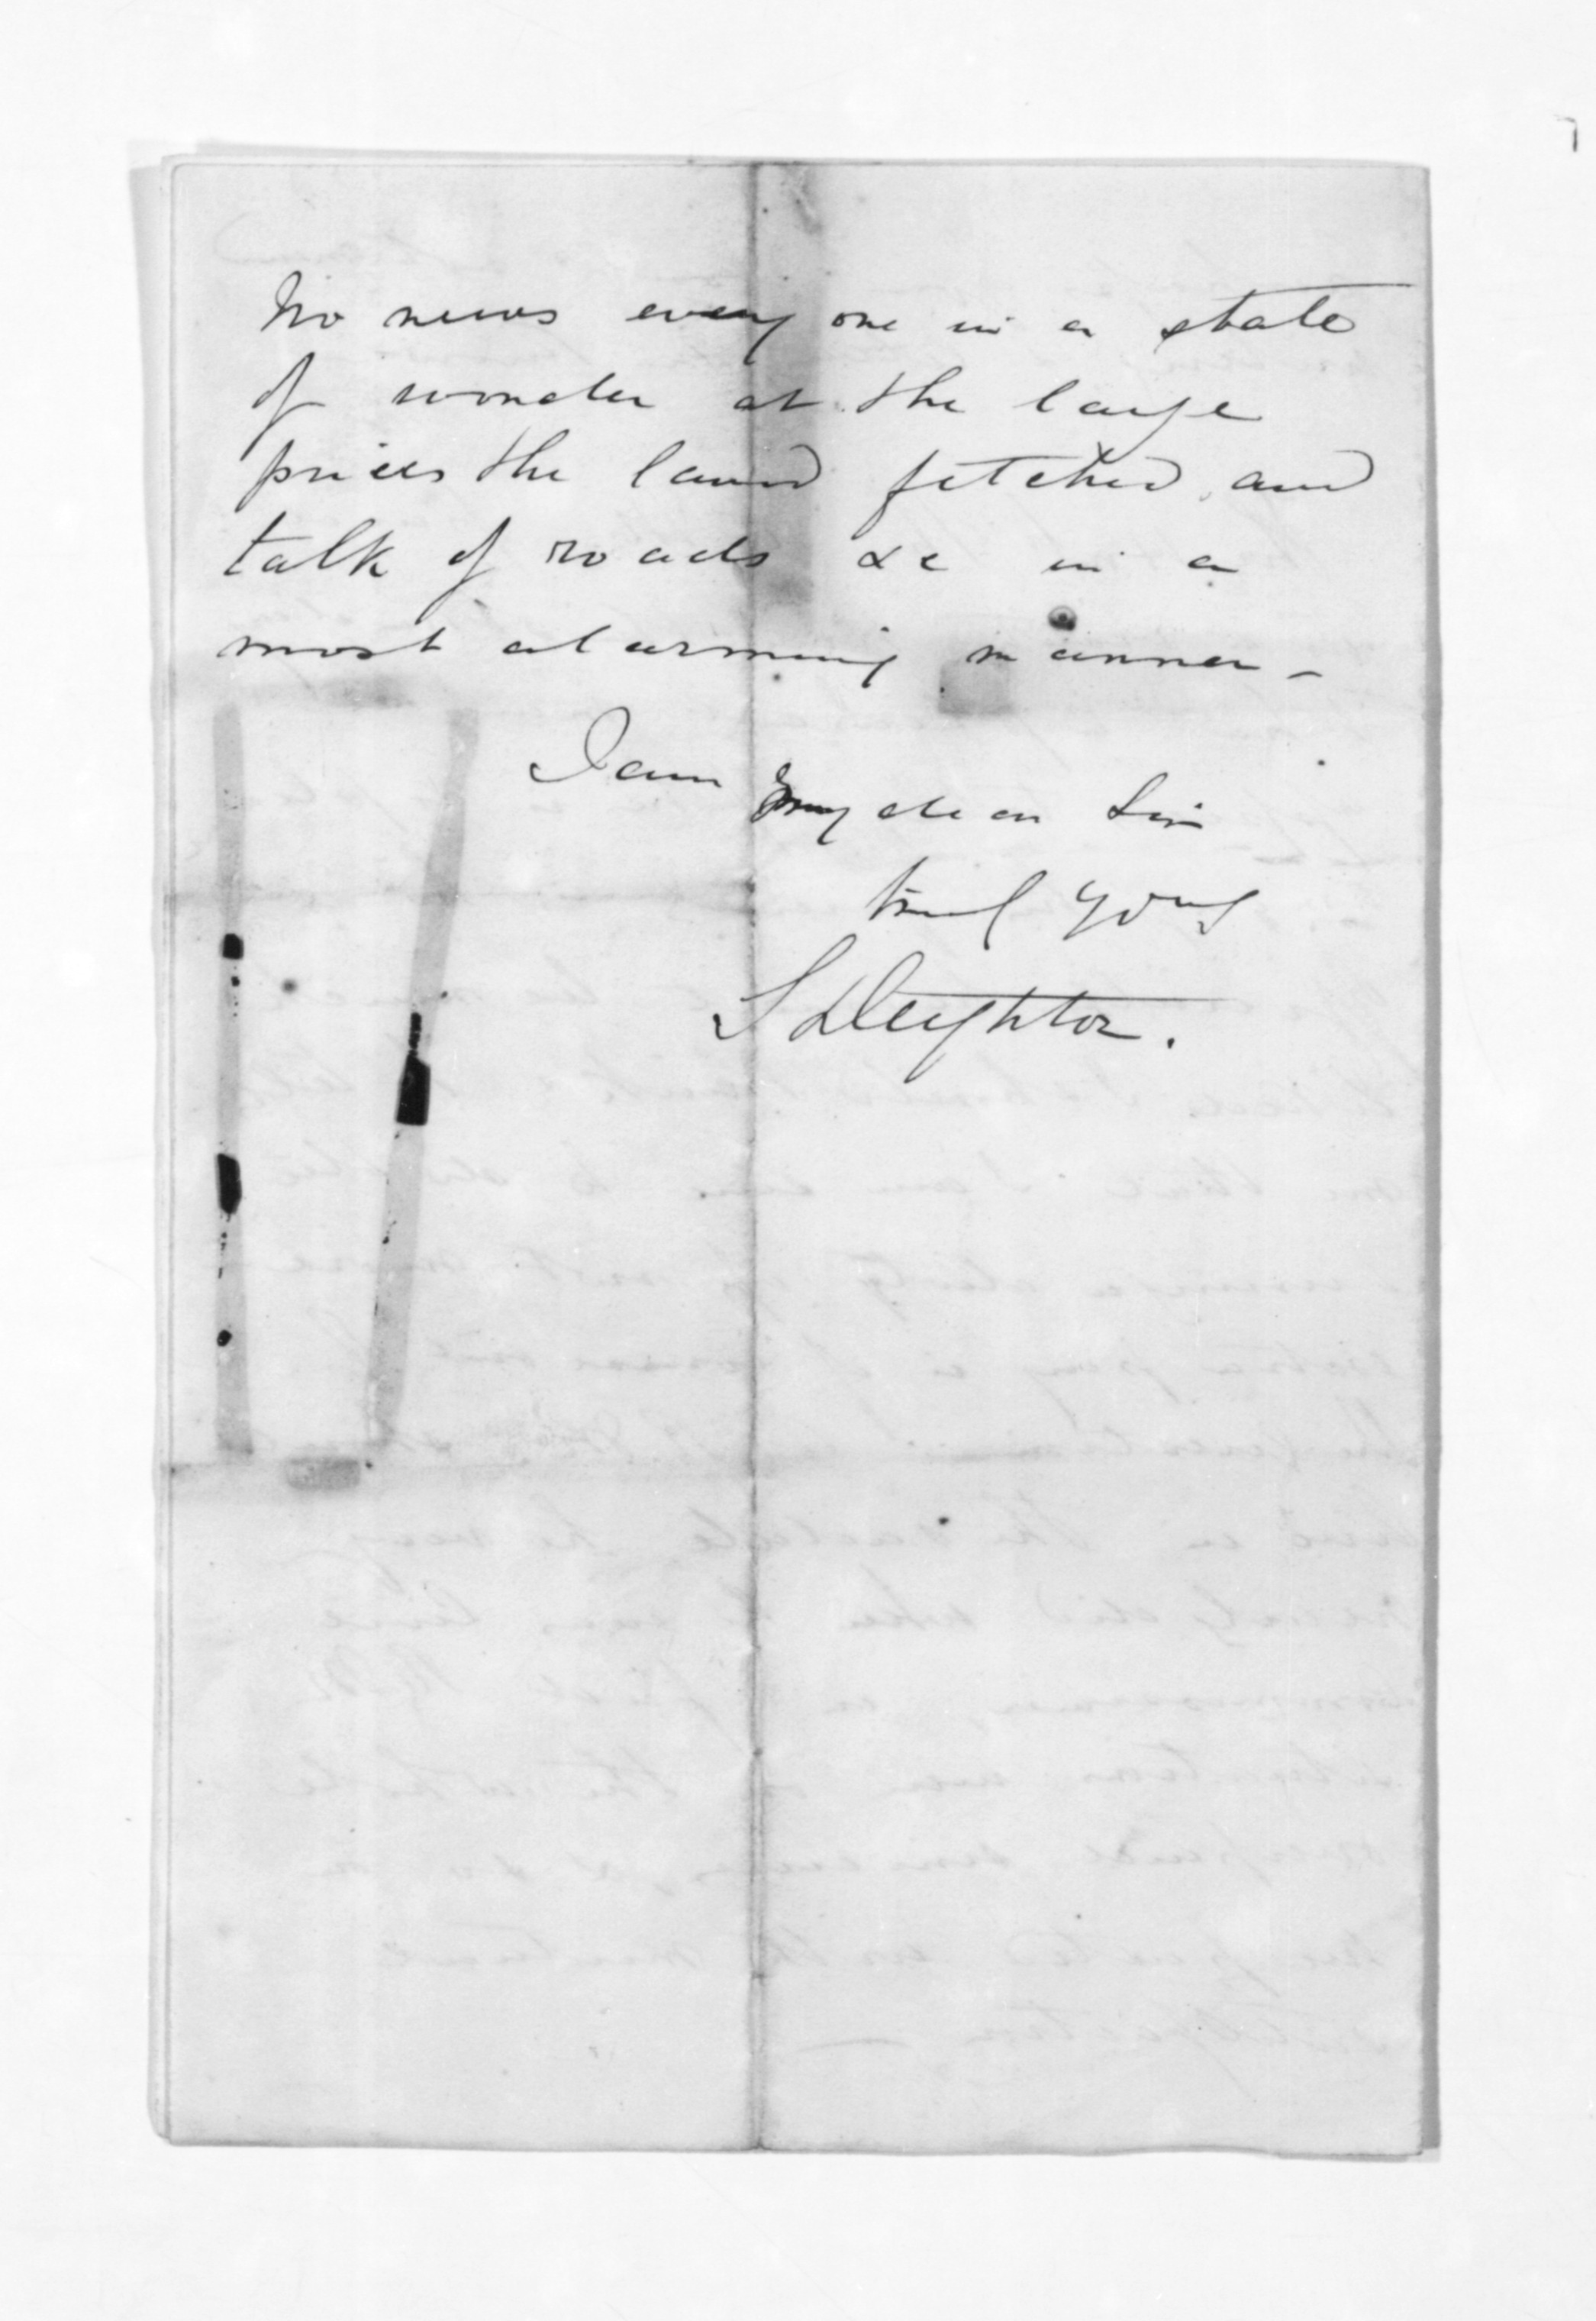 No news every one in a state
of wonder at the large
prices the land fetched, and
talk of roads &c in a
most alarming manner –
I am
My dear Sir
truly yours
S Deighton.